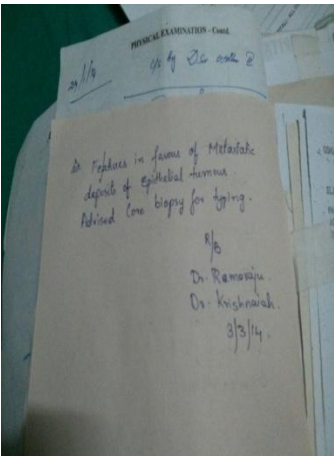 PHYSICAL EXAMINATION - Contd.
c/s by Dr
Features in favour of Metastatic
deposits of Epithelial tumour
Advised Core biopsy for typing.
R/B
Dr. Ramaraju
Dr. Krishnaiah.
3/3/14.